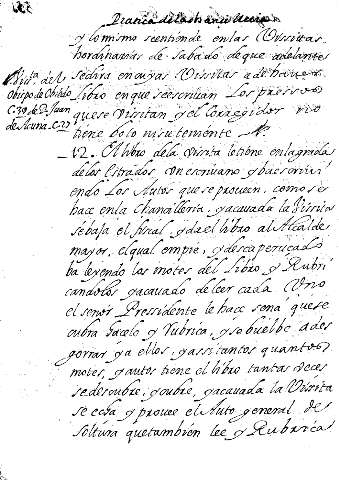 Pratica de la chancilleria
y lo mismo se entiende en las Vissitas
hordinarias de sabado de que adelante
se dira en cuyas Vissitas a de haver
libro en que se escrivan los pressos
que se Visitan y el Corregidor no
tiene Voto nisutemente
Vis.ta del
Obispo de Obiedo
C. 39. de D. Juan
de Acuna. C. 27
12. El libro de la Visita le tiene en la grada
de los Estrados, Un escrivano y ba escrivi
endo Los Autos que se proveen, como se
hace en la Chancilleria, y acavada la Vissita
se baja el fiscal, y da el libro al Alcalde
mayor, el qual em pie, y descaperuçado
ba leyendo los motes del libro y Rubri
candolos y acavado de leer cada Uno
el señor Presidente le hace sena que se
cubra hacelo y rubrica, y se buelbe a des
gorrar, y a ellos, y assi tantos quantos
motes, y autos tiene el libro tantas veces
se descubre, y cubre, y acavada la Visita
se echa y provee el Auto general de
soltura que tambien lee y Rubrica